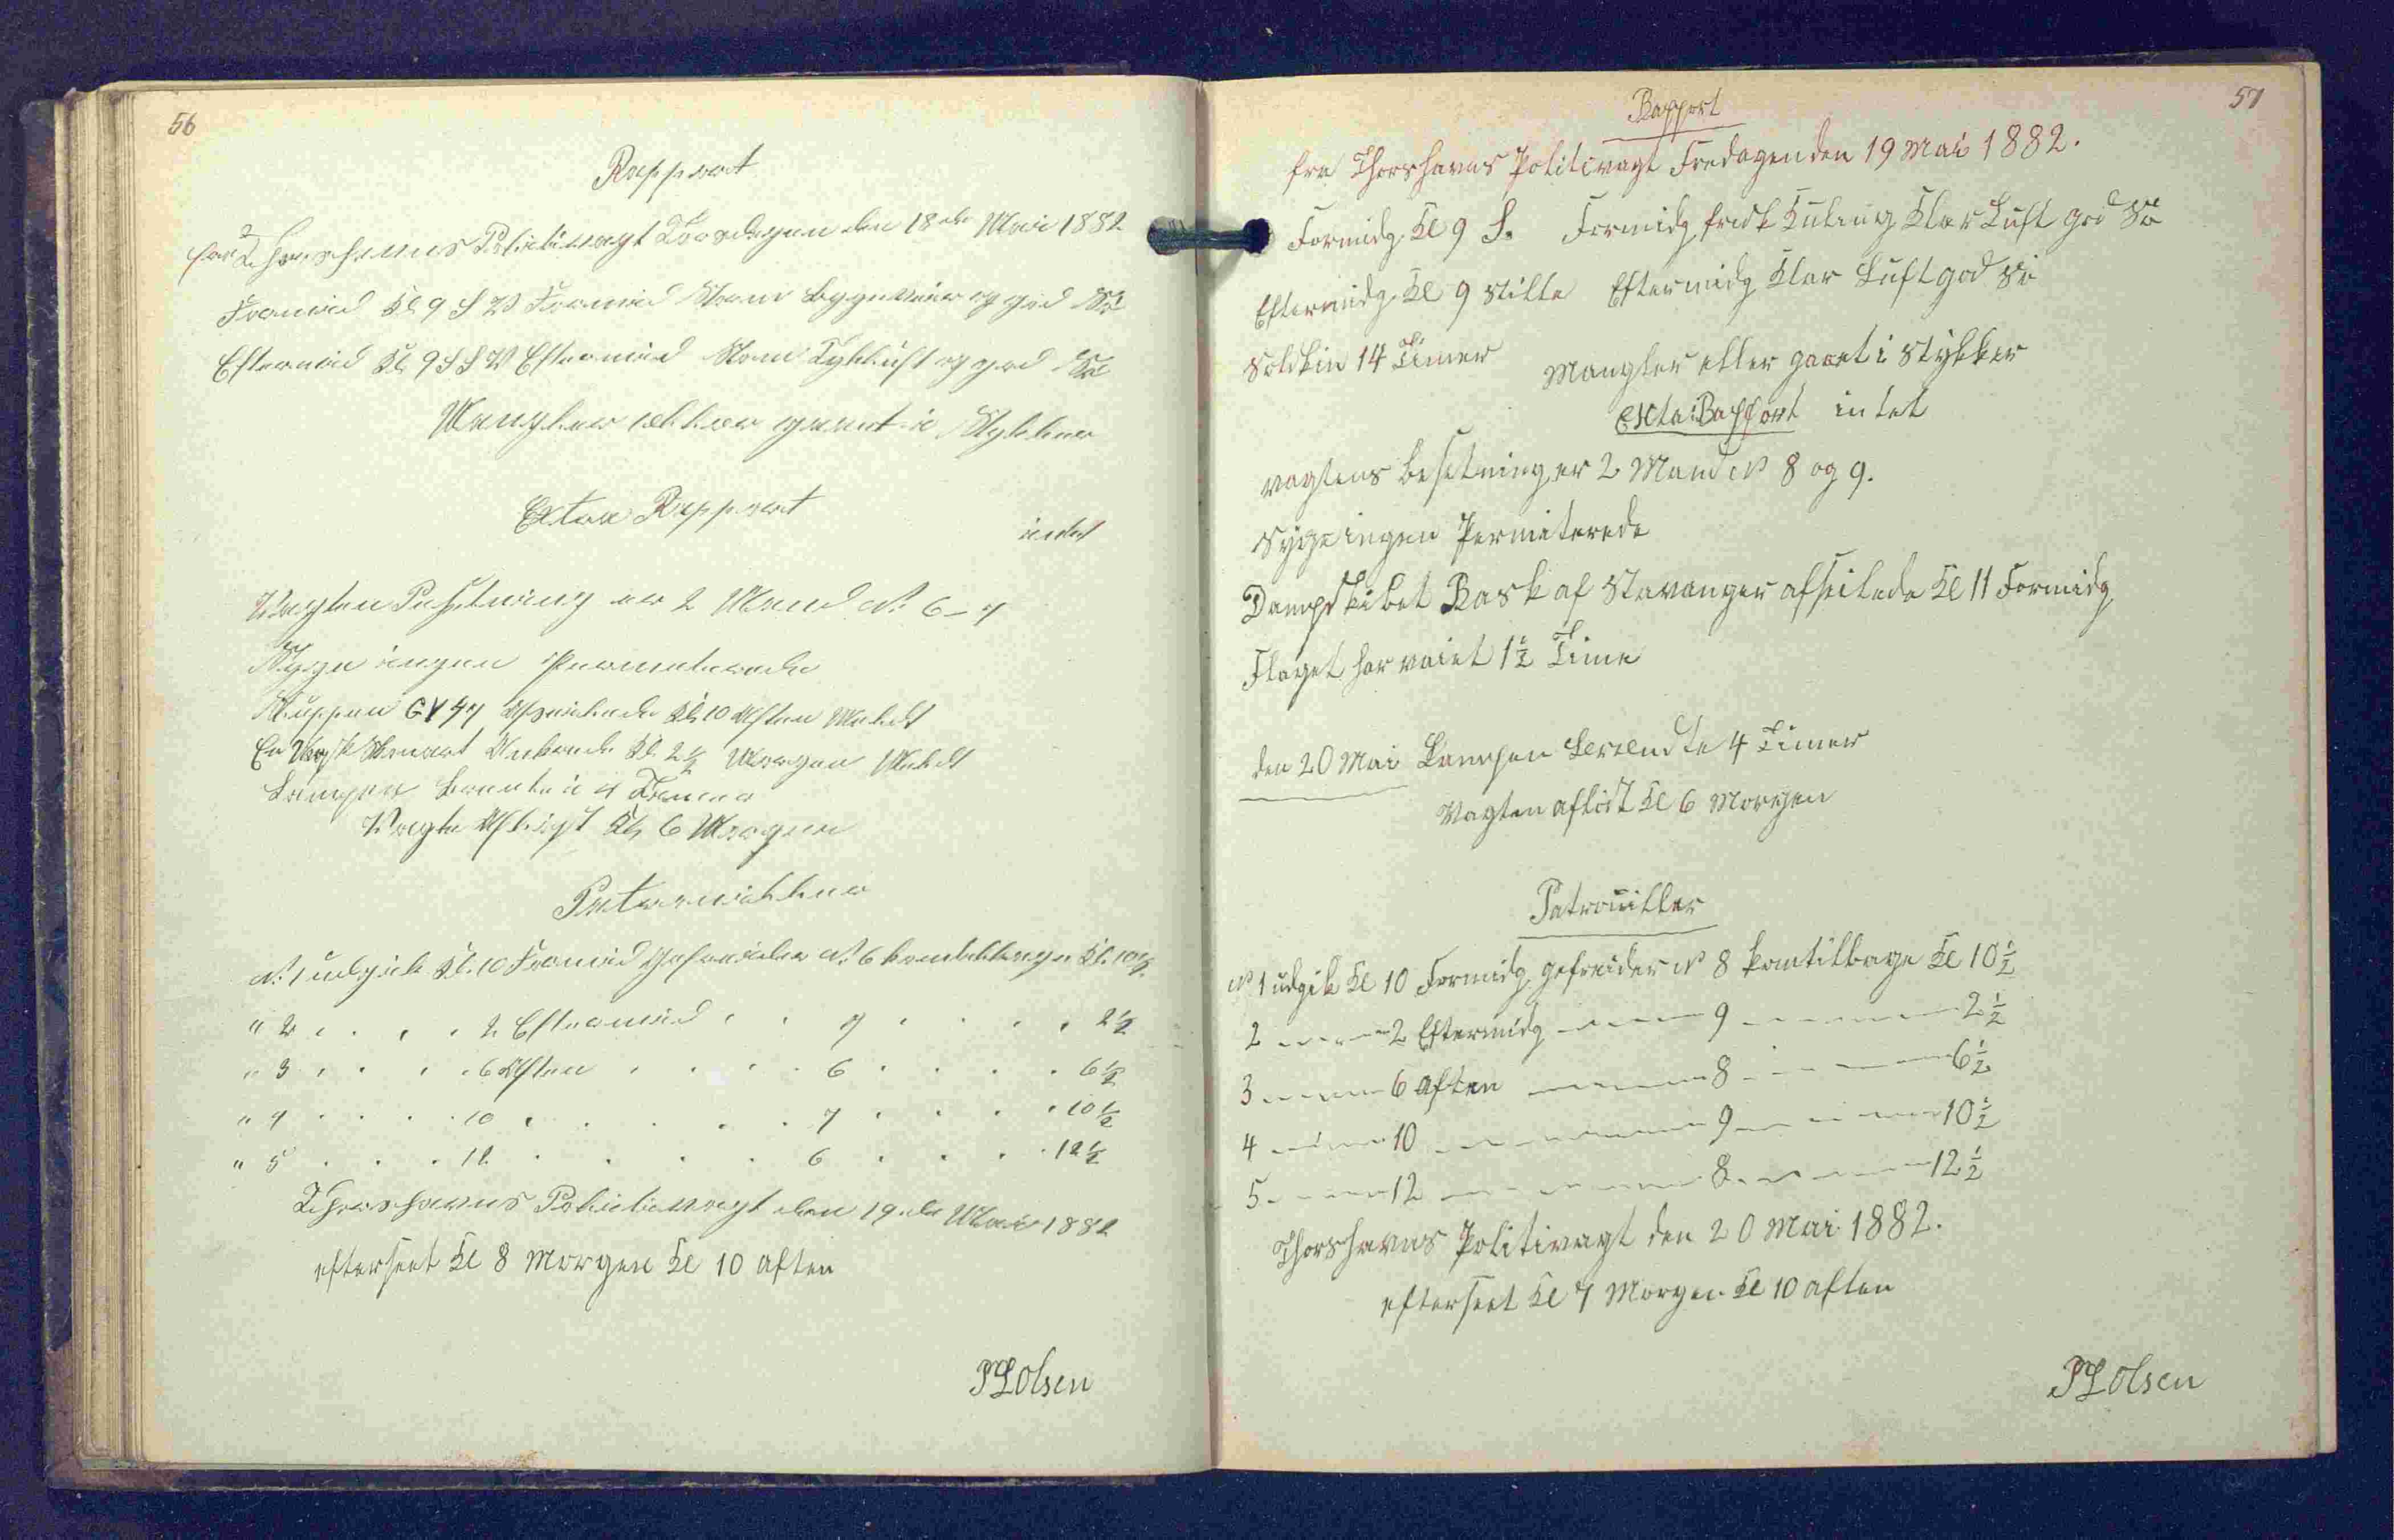 56
Rapport
fra Thorshavns Politivagt Torsdagen den 18de Mai 1882
Formid Kl 9 S V Formid Storm Bygeveir og god Sö
Eftermid Kl 9 S S V Eftermid Storm Tyk luft og god Sö
Mangler eller gaaet i Stykker
Extra Rapport
intet
Vagten Besetning er 2 Mand No 6-7
Syge ingen Permeterede
Sluppen GV 47 Afseilede Kl 10 Aften Meldt
En Ankrede Kl 2½ Morgen Meldt
Lampen brente i 4 Timer
Vagte Aflöst Kl 6 Morgen
Patrouiller
No 1 udgik Kl. 10 Formid Gefreider No 6 kom tilbage Kl. 10½
" 2 . . . . 2 Eftermid . . 7 . . . . 2½
" 3 . . . . 6 Aften . . . . 6 . . . . 6½
" 4 . . . . 10 . . . . . 7 . . . . 10½
" 5 . . . 12 . . . . 6 . . . . 12½
Thorshavns Politivagt den 19de Mai 1882
efterseet Kl 8 Morgen Kl 10 aften
PLOlsen
57
Rapport
fra Thorshavns Politivagt Fredagen den 19 Mai 1882.
Formidg Kl 9 S. Formidg frisk Kuling Klar Luft god Sö
Eftermidg Kl 9 Stille Eftermidg Klar Luft god Sö
Solskin 14 Timer
Mangler eller gaaet i Stykker
Exta Rapport intet
vagtens besetning er 2 Mand No 8 og 9.
Syge ingen Permiterede
Dampskibet Rask af Stavanger afseilede Kl 11 Formidg
Flaget har vaiet 1½ Time
den 20 Mai Lampen brendte 4 Timer
Vagten aflöst Kl 6 Morgen
Patrouiller
No 1 udgik Kl 10 Formidg gefreider No 8 kom tilbage Kl 10½
2 ---- 2 Eftermidg ---- 9 ---- 2½
3 ---- 6 aften ---- 8 ---- 6½
4 ---- 10 ---- 9 ---- 10½
5 ---- 12 ---- 8 ---- 12½
Thorshavns Politivagt den 20 Mai 1882.
efterseet Kl 7 Morgen Kl 10 aften
PLOlsen